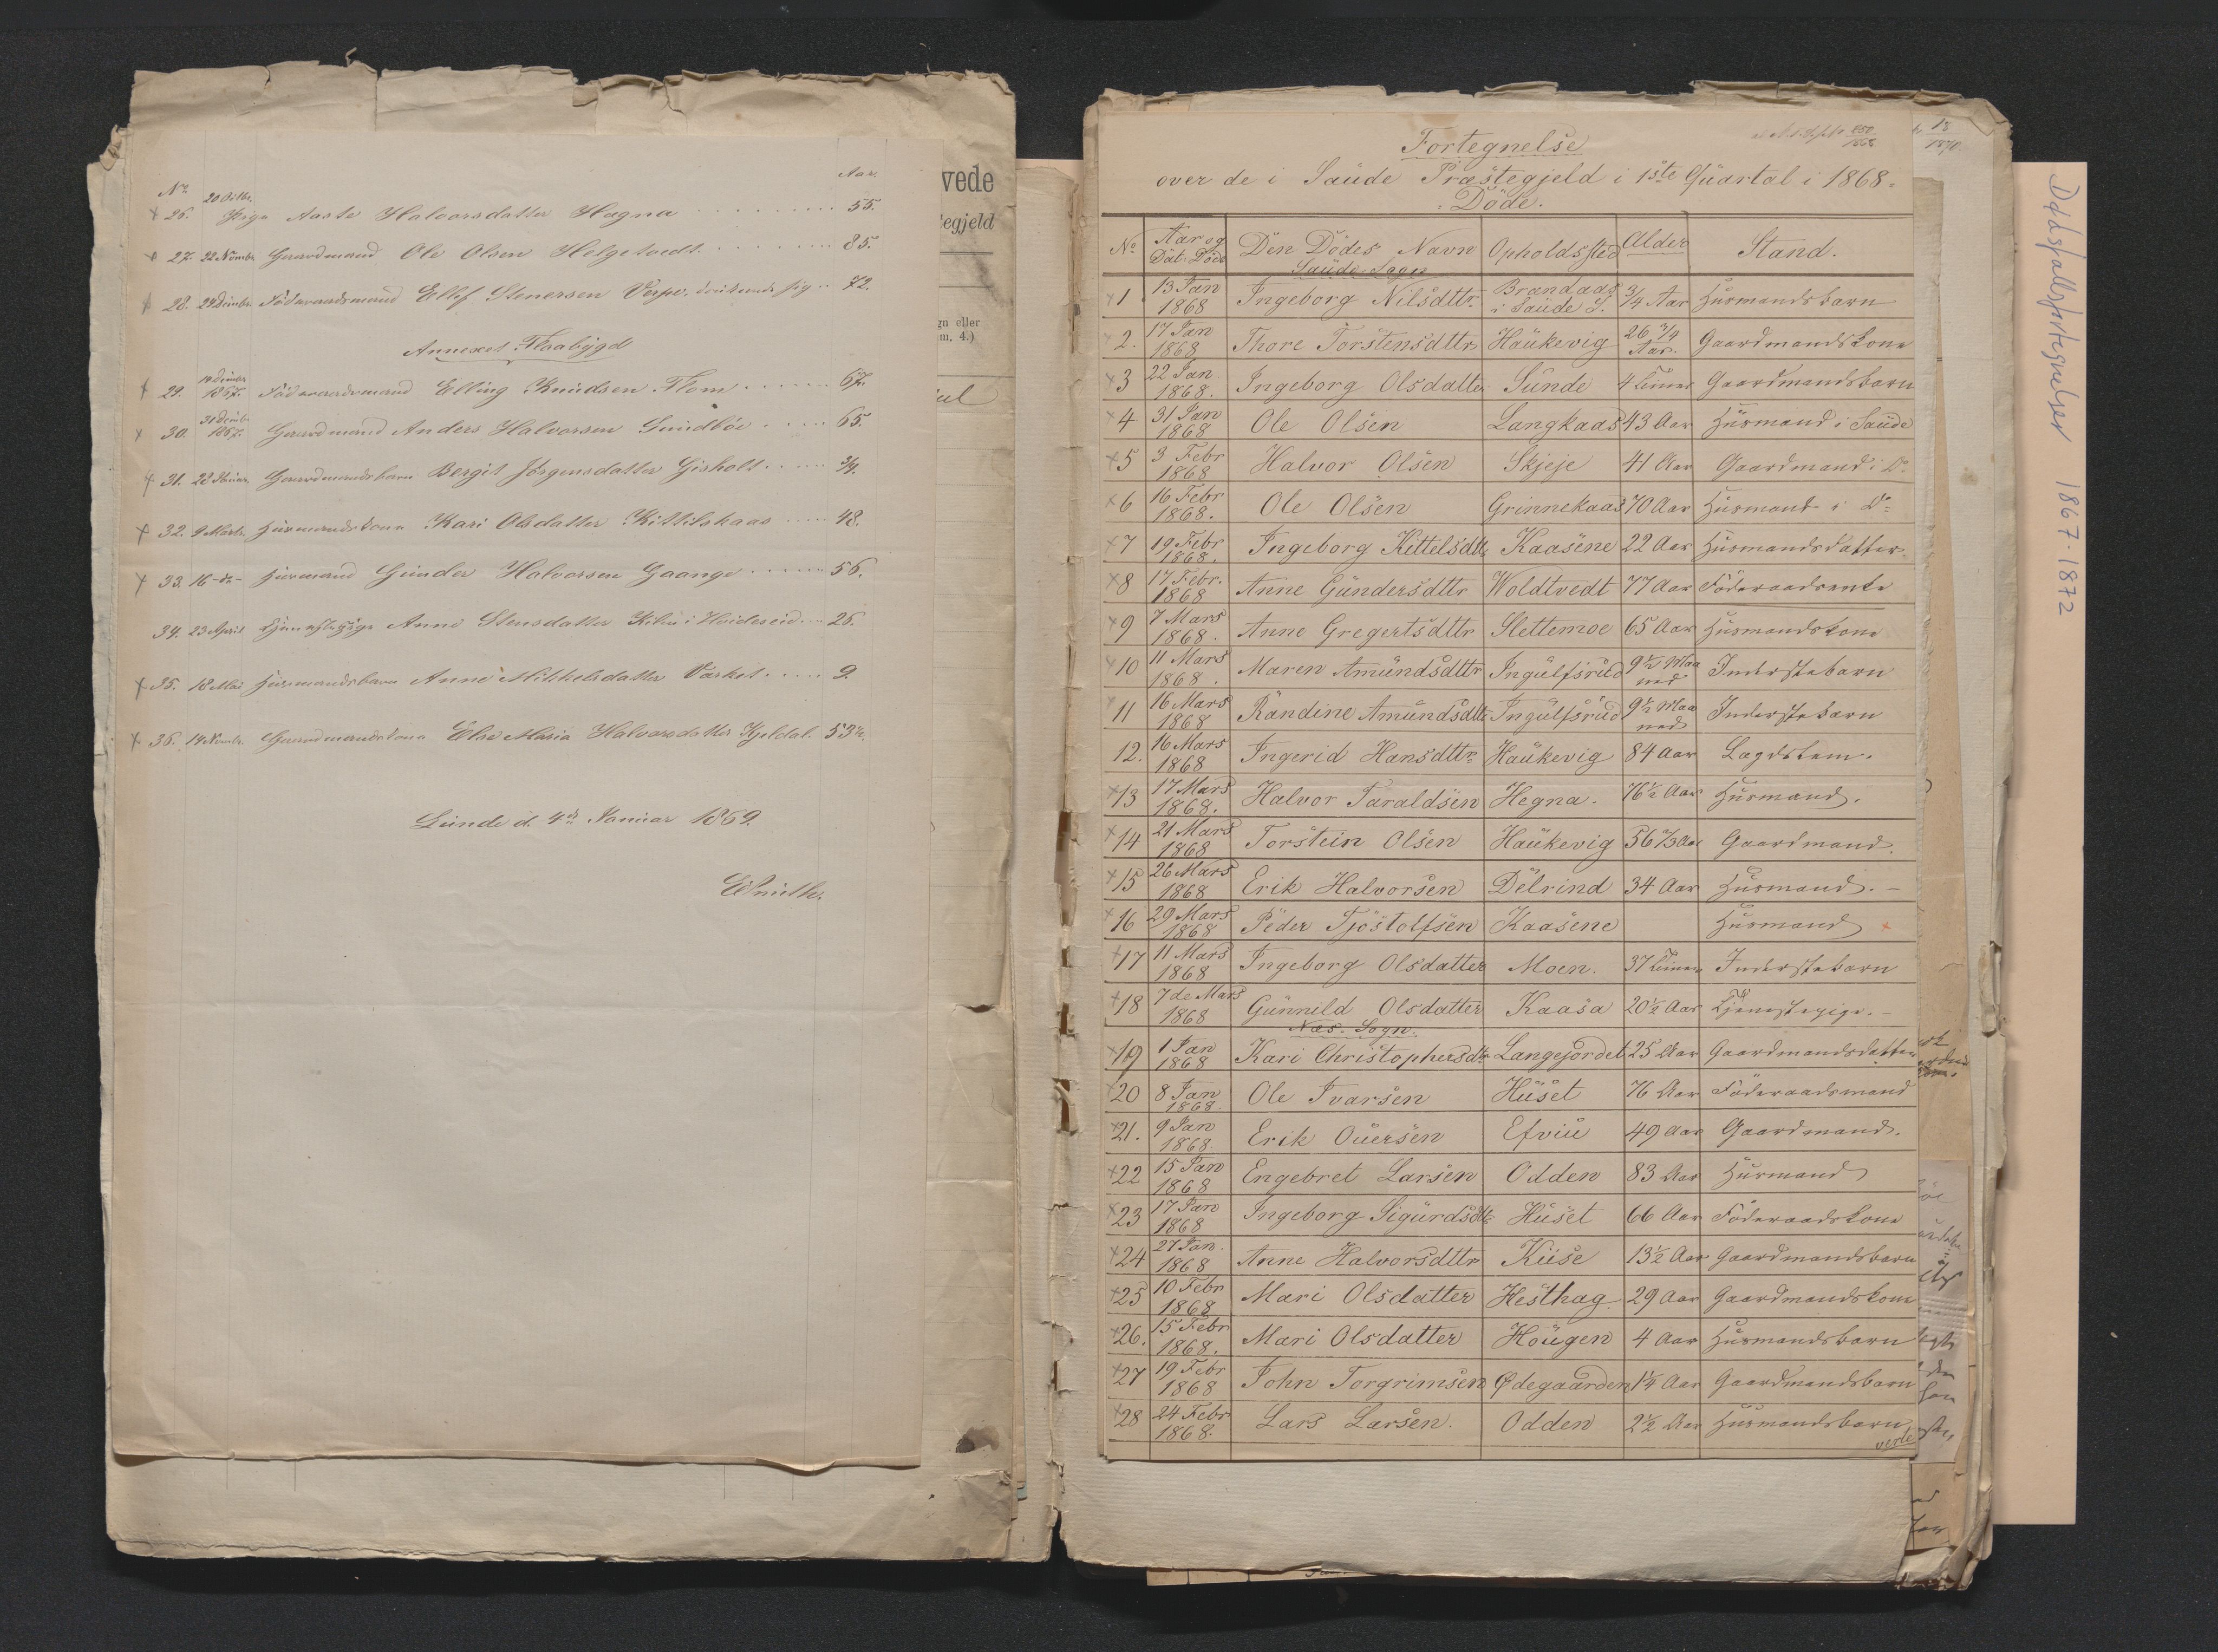 No. Aar.
26. 20 Octbr. Pige Aaste Halvorsdatter Hagna 55.
27. 22 Novmbr. Gaardmand Ole Olsen Helgetvedt 85.
28. 24 Decmbr. Föderaadsmand Ellef Stenersen Verpe, sig 72.
Annexet Flaabygd
29. 14 Decmbr 1867. Föderaadsmand Elling Knudsen Flom 67.
30. 31 Decmbr 1867. Gaardmand Anders Halvorsen Sundböe 65.
31. 22 Gaardmandsbarn Bergit Jörgensdatter Gisholt 3/4.
32. 9 Marts Huusmandskone Kari Olsdatter Kittilskaas 48.
33. 16 -do- Huusmand Gunder Halvorsen Gaange 56.
34. 23 April Tjenestepige Anne Stensdatter i Hvideseid 26.
35. 18 Mai Huusmandsbarn Anne Mikkelsdatter Vasket 9.
36. 14 Novmbr. Gaardmandskone Else Maria Halvorsdatter Kjeldal. 53½.
Lunde d. 4de Januar 1869.
ESmith.
vede
egjeld
gn eller
m. 4.)
Fortegnelse
over de i Saude Præstegjeld i 1ste Quartal i 1868.
Döde.
No Aar og Dat. Döde Den Dödes Navn Opholdssted Alder Stand.
Saude Sogn
1 13 Jan 1868 Ingeborg Nilsdttr. Brandaas i Saude S. 3/4 Aar Huusmandsbarn
2. 17 Jan 1868 Thore Torstensdttr Haukevig 26 3/4 Aar. Gaardmandskone
3 22 Jan 1868. Ingeborg Olsdatter Sunde 4 Timer Gaardmandsbarn
4 31 Jan 1868 Ole Olsen Langkaas 43 Aar Huusmand i Saude
5 3 Febr 1868 Halvor Olsen Skjeje 41 Aar Gaardmand i Do
6 16 Febr 1868. Ole Olsen Grinnekaas 70 Aar Huusmand i Do
7 19 Febr 1868. Ingeborg Kittelsdttr Kaasene 22 Aar Huusmandsdatter
8 17 Febr. 1868 Anne Gundersdttr Woldtvedt 77 Aar Föderaadsenke
9 7 Mars 1868. Anne Gregertsdttr Slettemoe 65 Aar Huusmandskone
10 11 Mars 1868. Maren Amundsdttr Ingulfsrud 9½ Maaned Inderstebarn
11 16 Mars 1868 Randine Amundsdttr Ingulfsrud 9½ Maaned Inderstebarn
12. 16 Mars 1868 Ingerid Hansdttr Haukevig 84 Aar Lægdslem.
13 17 Mars 1868. Halvor Taraldsen Hegna. 76½ Aar Huusmand.
14 21 Mars 1868 Torstein Olsen Haukevig 56 2/3 Aar Gaardmand.
15 26 Mars 1868 Erik Halvorsen Delrind 34 Aar Huusmand. -
16 29 Mars 1868 Peder Tjöstolfsen Kaasene Huusmand
17 11 Mars 1868 Ingeborg Olsdatter Moen. 37 Timer Inderstebarn
18 7 de Mars 1868 Gunnild Olsdatter Kaasa 20½ Aar Tjenestepige. -
Næs. Sogn.
19 1 Jan 1868 Kari Christophersdtr Langejordet 25 Aar Gaardmandsdatter
20 8 Jan 1868. Ole Ivarsen Huset 76 Aar Föderaadsmand
21. 9 Jan 1868. Erik Ouersen Efviu 49 Aar Gaardmand.
22 15 Jan 1868 Engebret Larsen Odden 83 Aar Huusmand
23 17 Jan 1868 Ingeborg Sigurdsdtr Huset 66 Aar Föderaadskone
24 27 Jan. 1868 Anne Halvorsdttr Kuse 13½ Aar Gaardmandsbarn
25 10 Febr 1868 Mari Olsdatter Hesthag 29 Aar Gaardmandskone
26. 15 Febr 1868. Mari Olsdatter Hougen 4 Aar Huusmandsbarn
27 19 Febr 1868 John Torgrimsen Ødegaarden 1¼ Aar Gaardmandsbarn
28 24 Febr 1868. Lars Larsen. Odden 2½ Aar Huusmandsbarn
verte
Dødsfallsfortegnelser 1867-1872